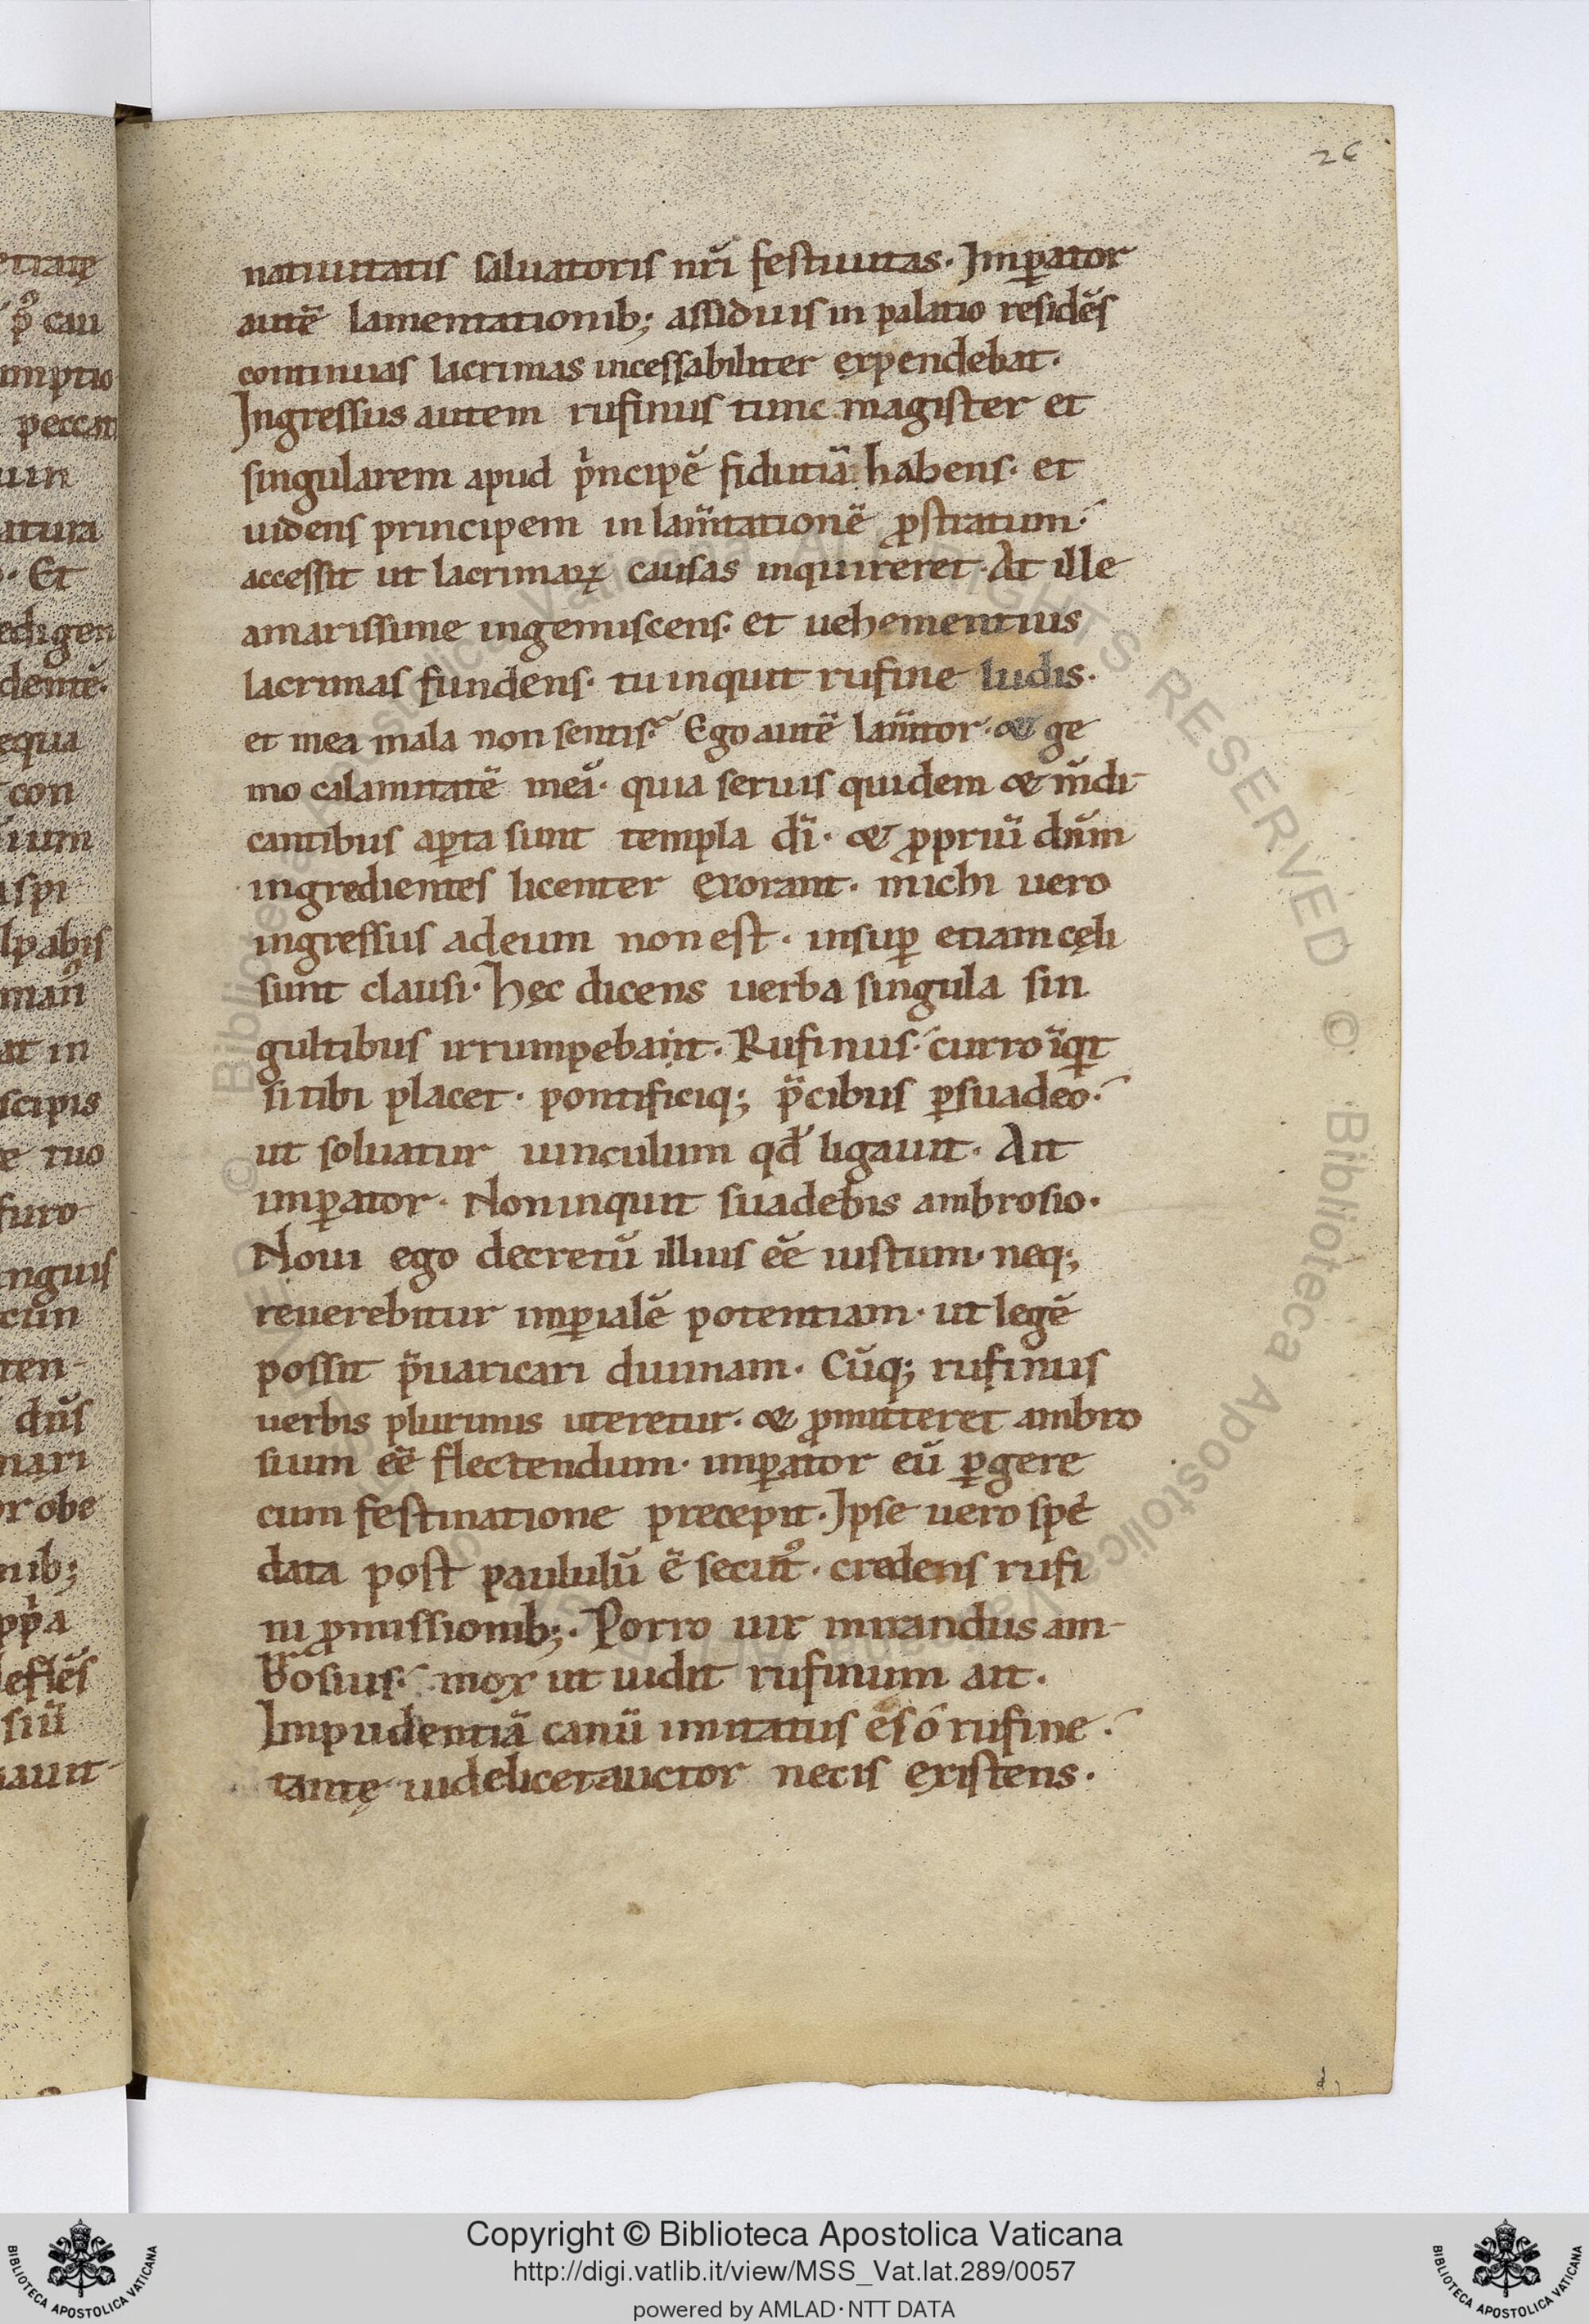 26
natiuitatis saluatoris nr̄i festiuitas. Imꝑator
autē lamentationib; assiduis in palatio residēs
continuas lacrimas incessabiliter expendebat.
Ingressus autem rufinus tunc magister et
singularem apud pͥncipē fidutiā habens. et
uidens principem in lam̄tationē ꝓstratum.
accessit ut lacrimaꝝ causas inquireret. At ille
amarissime ingemiscens. et uehementius
lacrimas fundens. tu inquit rufine ludis.
et mea mala non sentis? Ego autē lam̄tor. & ge
mo calamitatē meā. quia seruis quidem & m̄di-
cantibus aꝑta sunt templa dī. & ꝓpriū dn̄m
ingredientes licenter exorant. michi uero
ingressus ad eum non est. insuꝑ etiam cęli
sunt clausi. hęc dicens uerba singula sin
gultibus irrumpebant. Rufinus. curro īqͥt
si tibi placet. pontificiq; p̄cibus ꝑsuadeo.
ut soluatur uinculum qđ ligauit. Ait
imꝑator. Non inquit suadebis ambrosio.
Noui ego decretū illius eē iustum. neq;
reuerebitur imꝑialē potentiam. ut legē
possit p̄uaricari diuinam. Cūq; rufinus
uerbis plurimis uteretur. & ꝓmitteret ambro
sium eē flectendum. imꝑator eū ꝑgere
cum festinatione precepit. Ipse uero spē
data post paululū ē secutꝰ. credens rufi
ni ꝓmissionib;. Porro uir mirandus am-
brosius. mox ut uidit rufinum ait.
Impudentiā canū imitatus es ó rufine.
tantę uidelicet auctor necis existens.
etiatę
pꝰ cau
umptio
peccat
uin
atura
. Et
edigen
dentē.
equa
con
ium
ispi
lpabis
manꝰ
at in
scipis
e tuo
furo
nguis
cun
ten-
dn̄s
nari
or obe
nib;
ppͥa
leflēs
siū
auit
© Biblioteca Apostolica Vaticana ALL RIGHTS RESERVED © Biblioteca Apostolica Vaticana
Copyright © Biblioteca Apostolica Vaticana
http://digi.vatlib.it/view/MSS_Vat.lat.289/0057
powered by AMLAD·NTT DATA
BIBLIOTECA APOSTOLICA VATICANA
BIBLIOTECA APOSTOLICA VATICANA